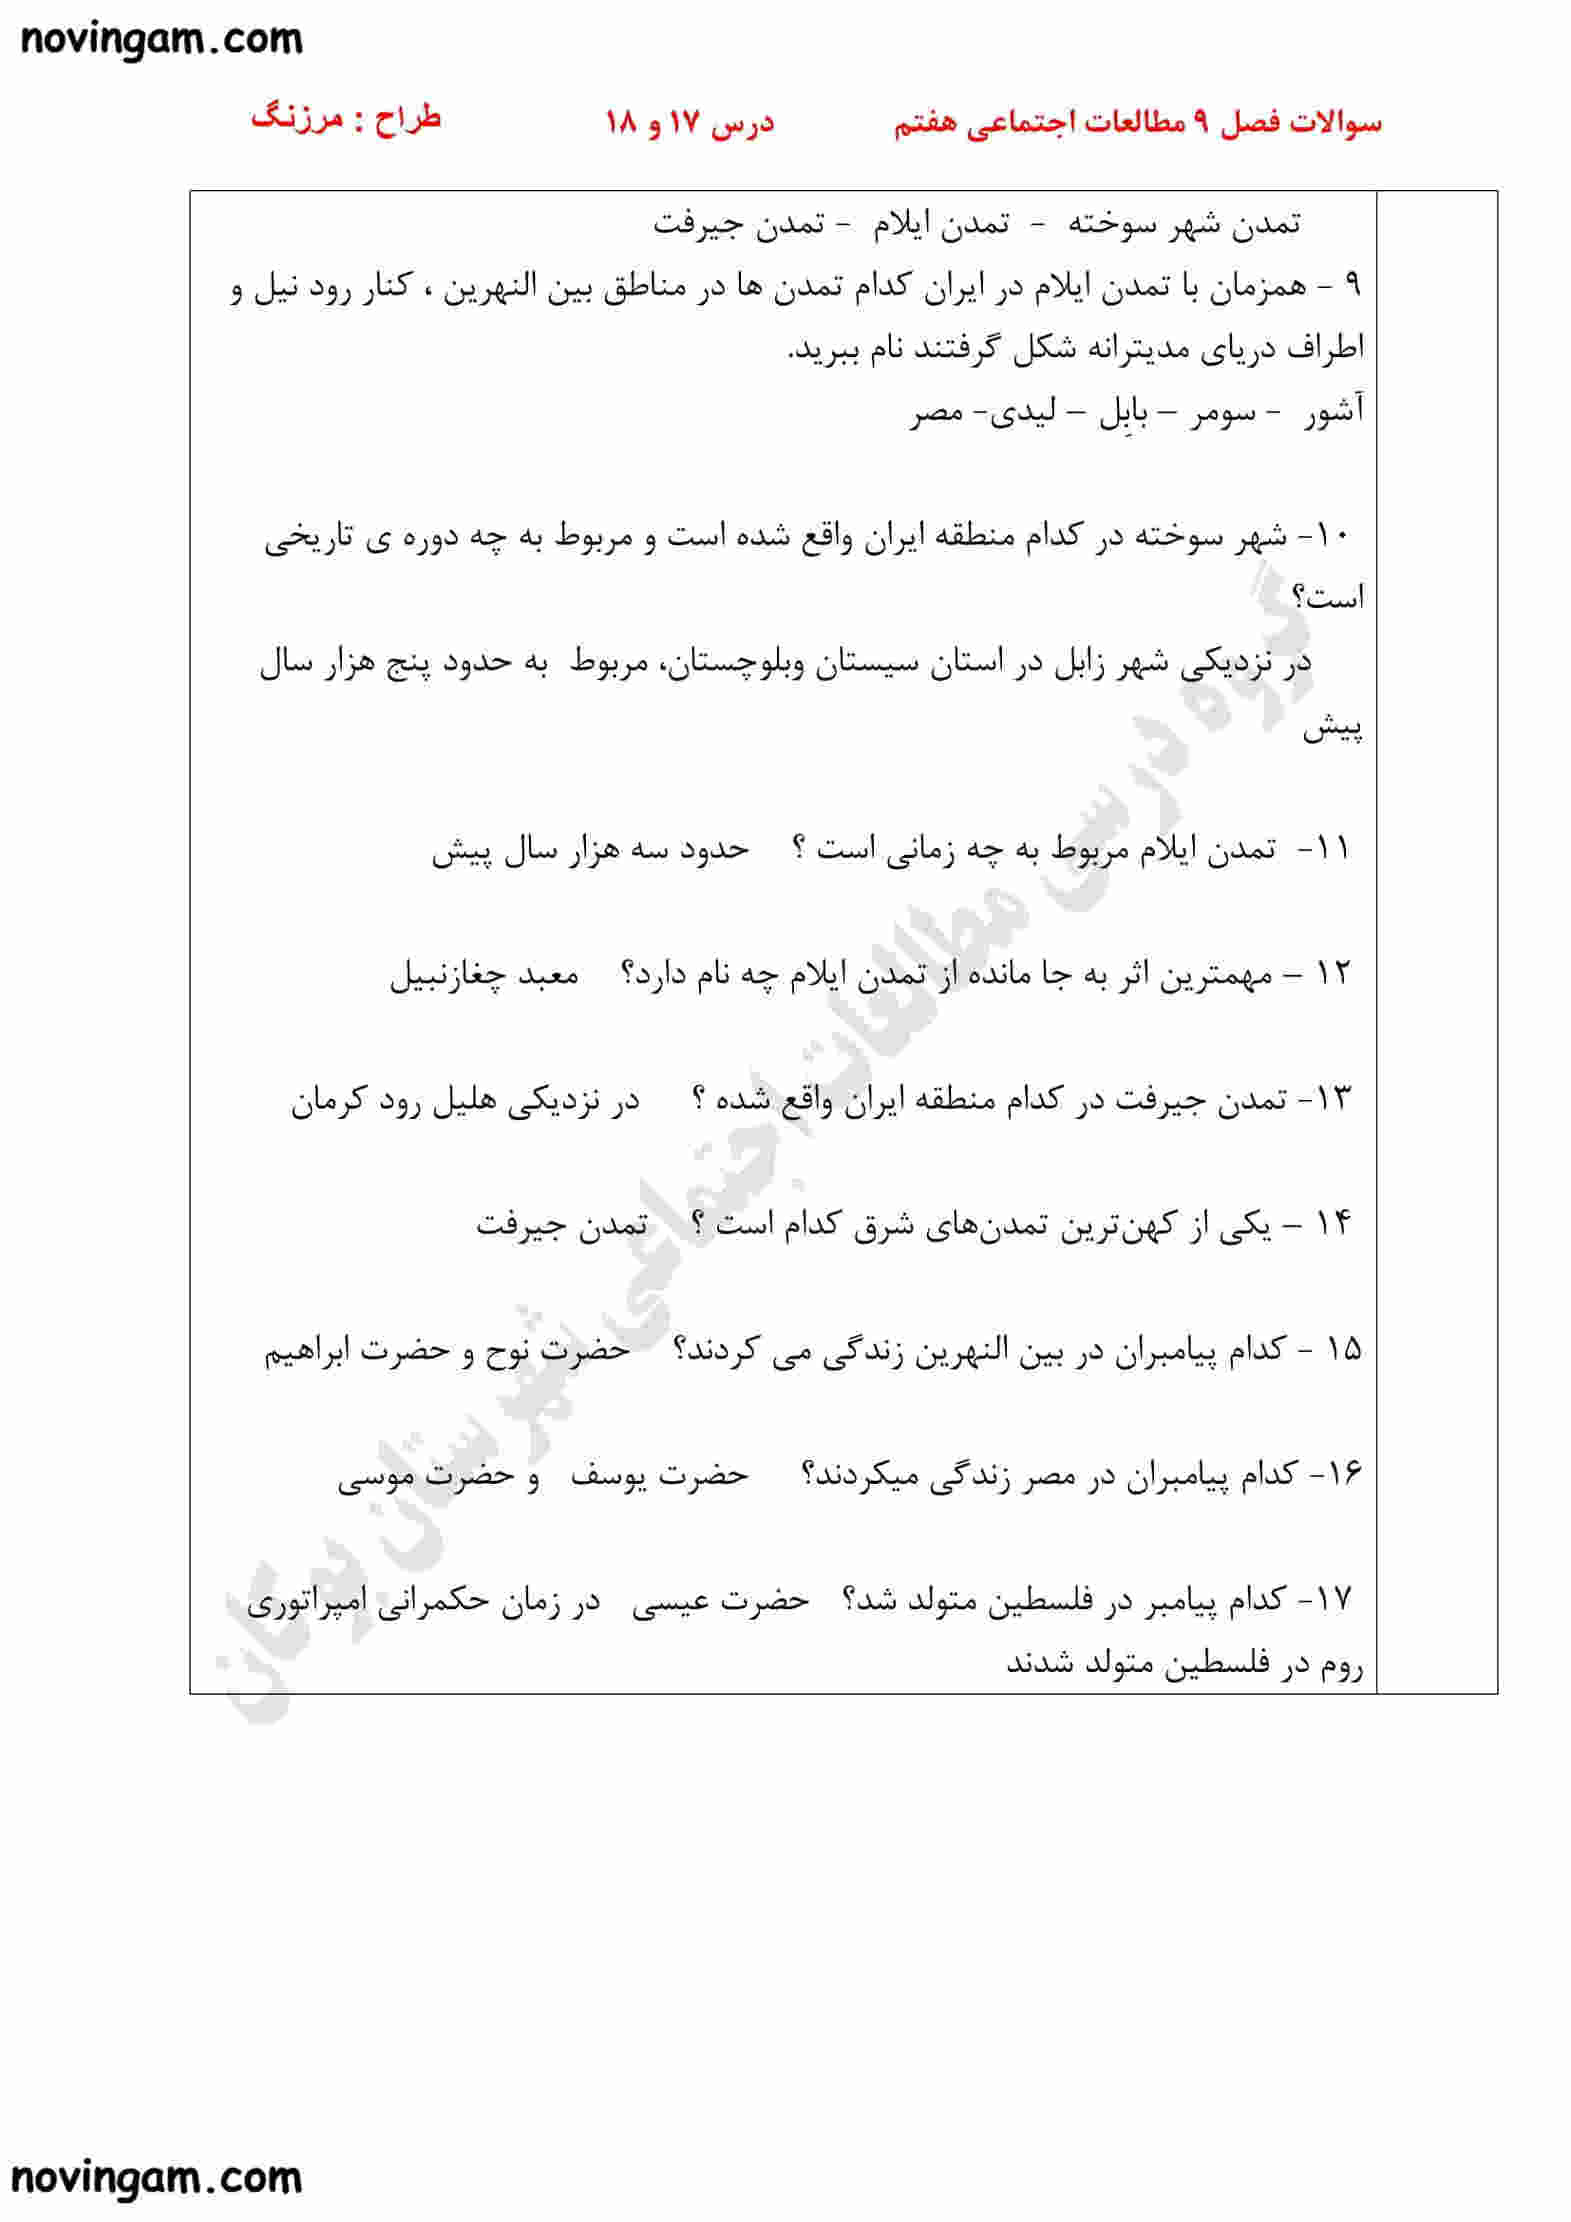 novingam.com
سوالات فصل ۹ مطالعات اجتماعی هفتم درس ۱۷ و ۱۸ طراح : مرزنگ
تمدن شهر سوخته - تمدن ایلام - تمدن جیرفت
۹ - همزمان با تمدن ایلام در ایران کدام تمدن ها در مناطق بین النهرین ، کنار رود نیل و
اطراف دریای مدیترانه شکل گرفتند نام ببرید.
آشور - سومر – بابِل – لیدی- مصر
۱۰- شهر سوخته در کدام منطقه ایران واقع شده است و مربوط به چه دوره ی تاریخی
است؟
در نزدیکی شهر زابل در استان سیستان وبلوچستان، مربوط به حدود پنج هزار سال
پیش
۱۱- تمدن ایلام مربوط به چه زمانی است ؟ حدود سه هزار سال پیش
۱۲ – مهمترین اثر به جا مانده از تمدن ایلام چه نام دارد؟ معبد چغازنبیل
۱۳- تمدن جیرفت در کدام منطقه ایران واقع شده ؟ در نزدیکی هلیل رود کرمان
۱۴ – یکی از کهن‌ترین تمدن‌های شرق کدام است ؟ تمدن جیرفت
۱۵ - کدام پیامبران در بین النهرین زندگی می کردند؟ حضرت نوح و حضرت ابراهیم
۱۶- کدام پیامبران در مصر زندگی میکردند؟ حضرت یوسف و حضرت موسی
۱۷- کدام پیامبر در فلسطین متولد شد؟ حضرت عیسی در زمان حکمرانی امپراتوری
روم در فلسطین متولد شدند
گروه درسی مطالعات اجتماعی شهرستان بوکان
novingam.com